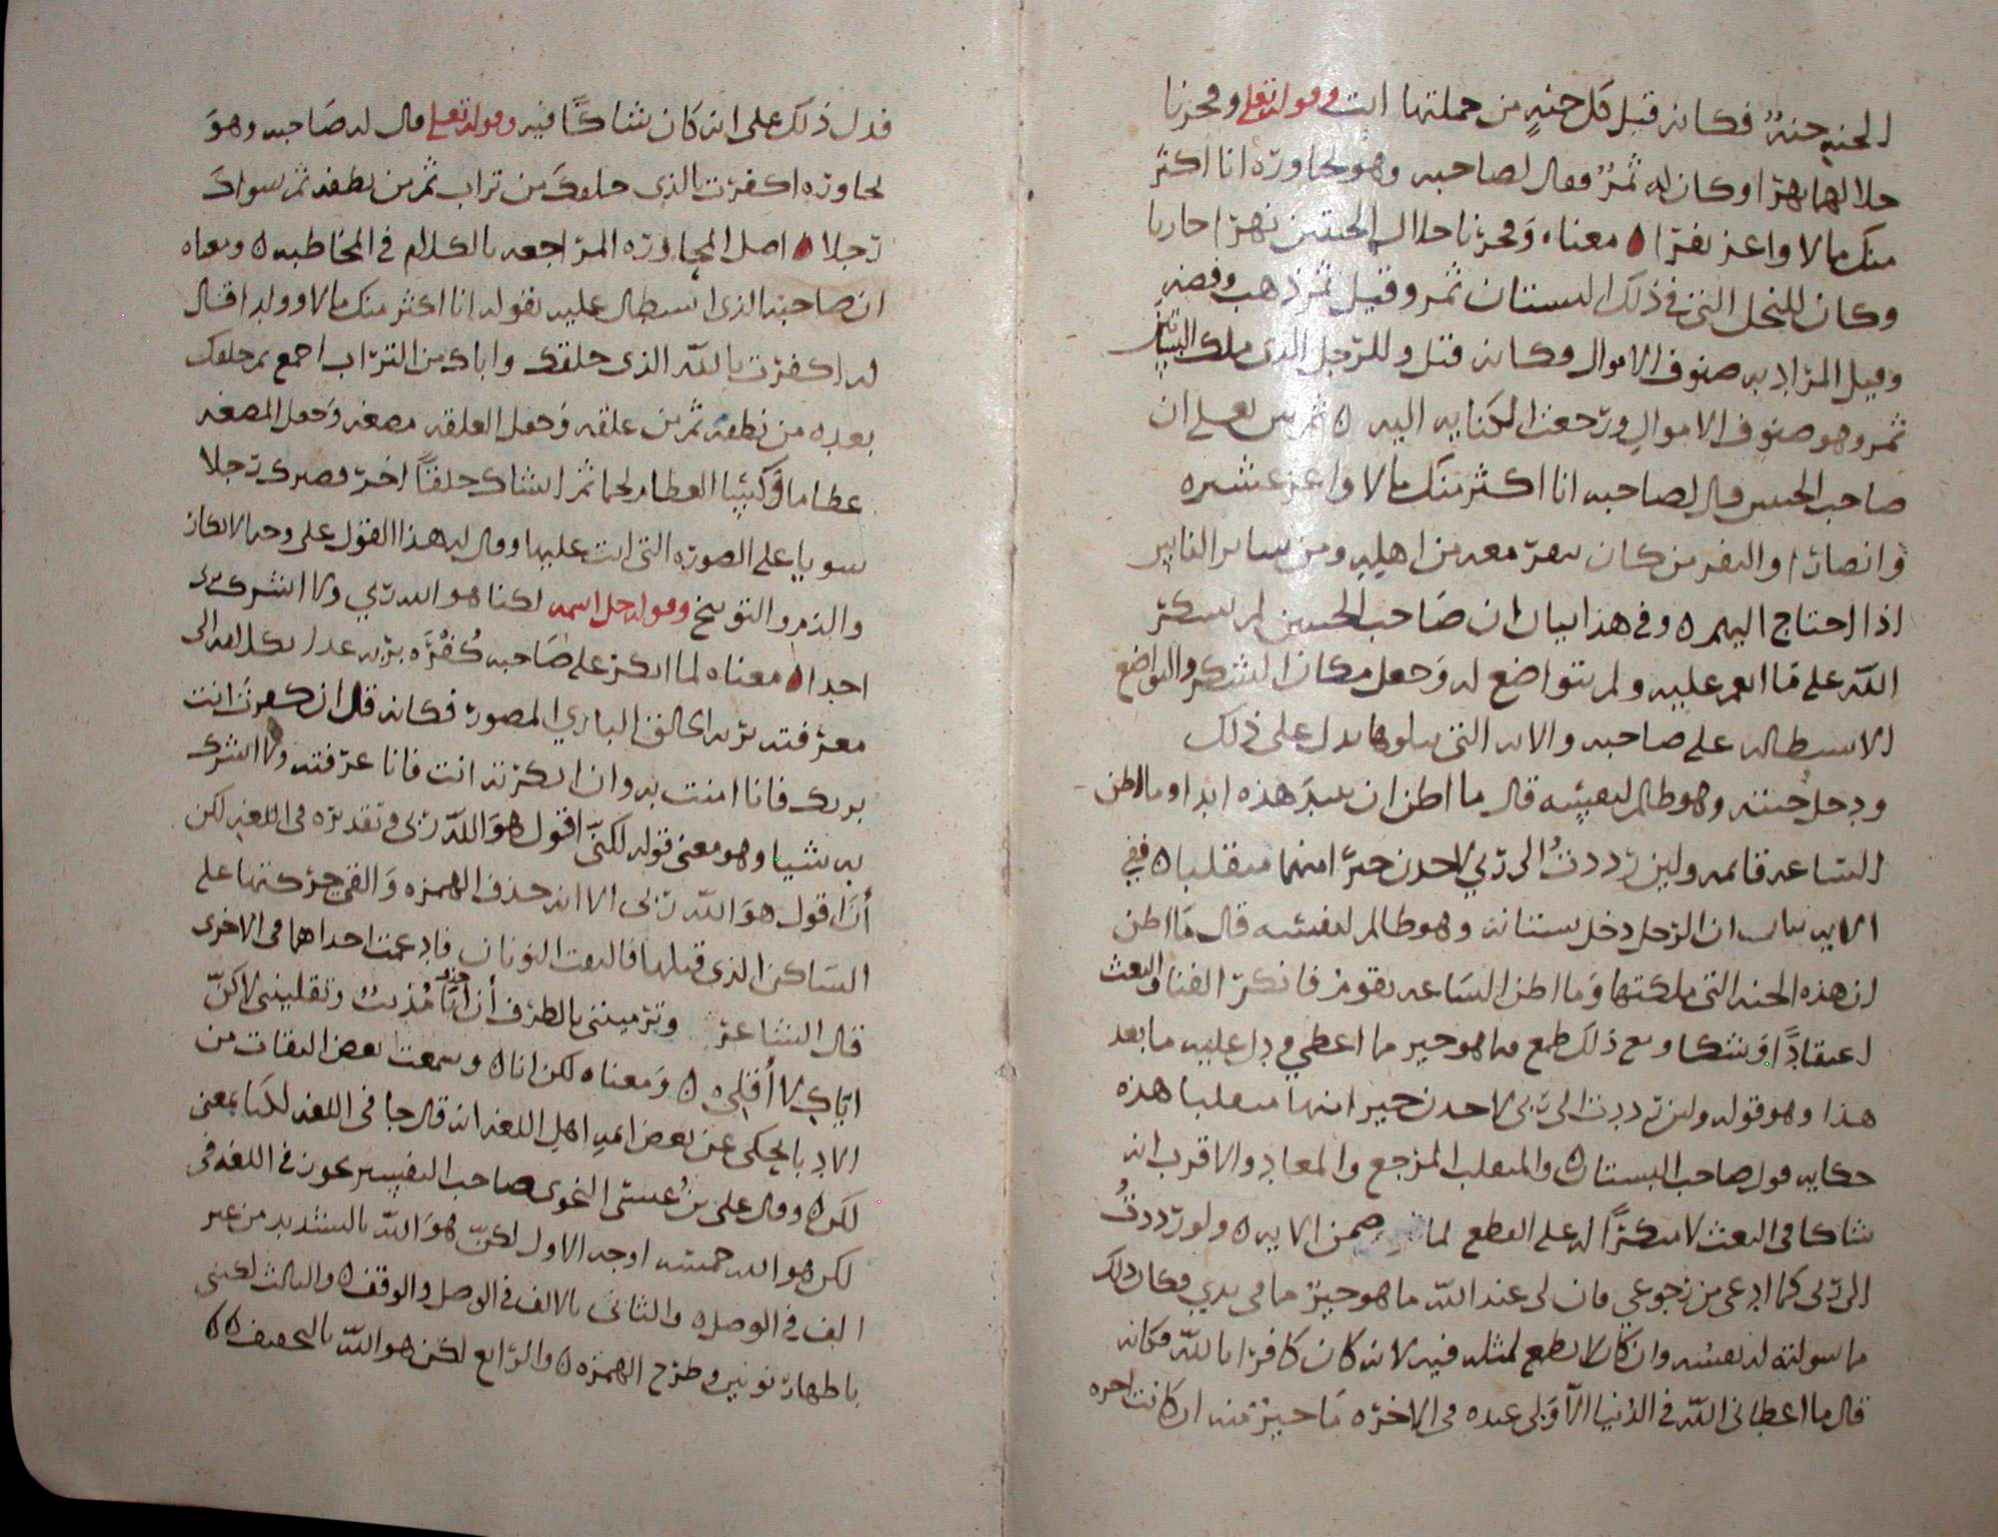 الجنه جنة فكانه قيل كل جنةٍ من جملتها اتت وقوله تعالى وفجرنا
خلالهما نهرا وكان له ثمرٌ فقال لصاحبه وهو يحاوره انا اكثر
منك مالا واعز نفرا ه معناه وفجرنا خلال الجنتين نهرا جاريا
وكان للنخل التي في ذلك البستان ثمر وقيل ثمر ذهب وفضه
وقيل المراد به صنوف الاموال وكانه قيل وللرجل الذي ملك البساتين
ثمر وهو صنوف الاموال ورجعت الكنايه اليه ه ثم بين تعالى ان
صاحب الجنتين قال لصاحبه انا اكثر منك مالا واعز عشيره
وانصارا والنفر من كان ينفر معه من اهله ومن ساير الناس
اذا احتاج اليهم ه وفي هذا بيان ان صاحب الجنتين لم يشكر
الله على ما انعم عليه ولم يتواضع له وجعل مكان الشكر والتواضع
الاستطاله على صاحبه والايه التي يتلوها يدل على ذلك
ودخل جنته وهو ظالم لنفسه قال ما اظن ان تبيد هذه ابدا وما اظن
الساعه قايمه ولين رددتُ الى ربي لاجدن خيرا منها منقلبا ه ففي
الايه بيان ان الرجل دخل بستانه وهو ظالم لنفسه قال ما اظن
ان هذه الجنه التي ملكتها وما اظن الساعه تقوم فانكر الفنا والبعث
اعتقادًا وشكا ومع ذلك طمع فيما هو خير مما اعطي ودل عليه ما بعد
هذا وهو قوله ولين رددت الى ربي لاجدن خير منها منقلبا هذه
حكايه قول صاحب البستان ه والمنقلب المرجع والمعاد والاقرب انه
شاكا في البعث لا منكرًا له على القطع لما ضمن الايه ه ولو رددتُ
الى ربي كما ادعي من رجوعي فان لي عند الله ما هو خير ما في يدي فكان ذلك
ما سولته له نفسه وان كان لا يطمع لمثله فيه لانه كان كافرا بالله فكانه
قال ما اعطاني الله في الدنيا الا ولي عنده في الاخره ما خير منه ان كانت اخره
فدل ذلك على انه كان شاكًا فيه وقوله تعالى قال له صاحبه وهو
يحاوره اكفرت بالذي خلقك من تراب ثم من نطفه ثم سواك
رجلا ه اصل المحاوره المراجعه بالكلام في المخاطبه ه ومعناه
ان صاحبه الذي استطال عليه بقوله انا اكثر منك مالا وولدا قال
له اكفرت بالله الذي خلقك واباك من التراب اجمع ثم خلقك
بعده من نطفه ثم من علقه وجعل العلقه مضغه وجعل المضغه
عظاما وكسيا العظام لحما ثم انشاك خلقًا اخر فصيرك رجلا
سويا على الصوره التي انت عليها وقال له هذا القول على وجه الانكار
والذم والتوبيخ وقوله جل اسمه لكنا هو الله ربي ولا اشرك بربي
احدا ه معناه لما انكر على صاحبه كُفْرَه بربه عدل بكلامه الى
معرفته بربه الخالق الباري المصور فكانه قال ان كفرت انت
بربك فانا امنت به وان انكرته انت فانا عرفته ولا اشرك
به شيا وهو معنى قوله لكنّ اقول هو الله ربي وتقديره في اللغه لكن
أنَا اقول هو الله ربي الا انه حذف الهمزه والقى حركتها على
الساكن الذي قبلها فالتقت النونان فادغمت احداهما في الاخرى
قال الشاعر وترمينني بالطرف أن أنتَ مُذنبٌ وتقلينني لاكنّ
اياكِ لا أَقْلي ه ومعناه لكن انا ه وسمعت بعض الثقات من
الادبا يحكي عن بعض ايمه اهل اللغه انه قال جا في اللغه لكنا بمعنى
لكن ه وقال علي بن عيسى النحوي صاحب التفسير يجوز في اللغه في
لكن هو الله خمسه اوجه الاول لكنّ هو الله بالتشديد من غير
الف في الوصل ه والثاني بالالف في الوصل والوقف ه والثالث لكنني
باظهار نونين وطرح الهمزه ه والرابع لكن هو الله بالتخفيف ه ه